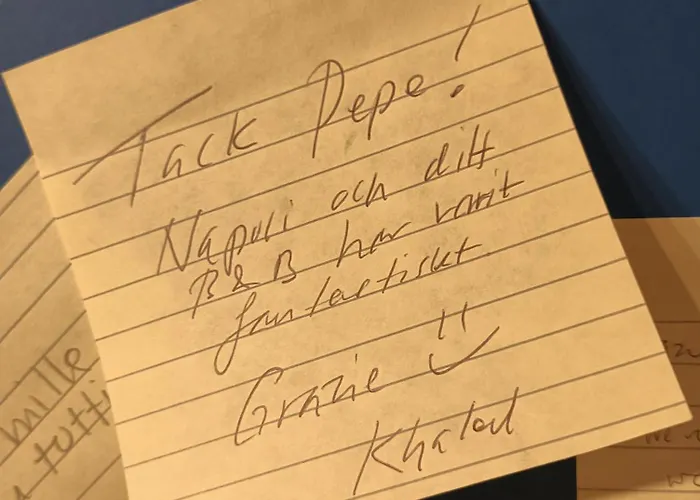 Tack Pepe!
Napoli och ditt
B&B har varit
fantastiskt.
Grazie
Khaled
mille
tutti